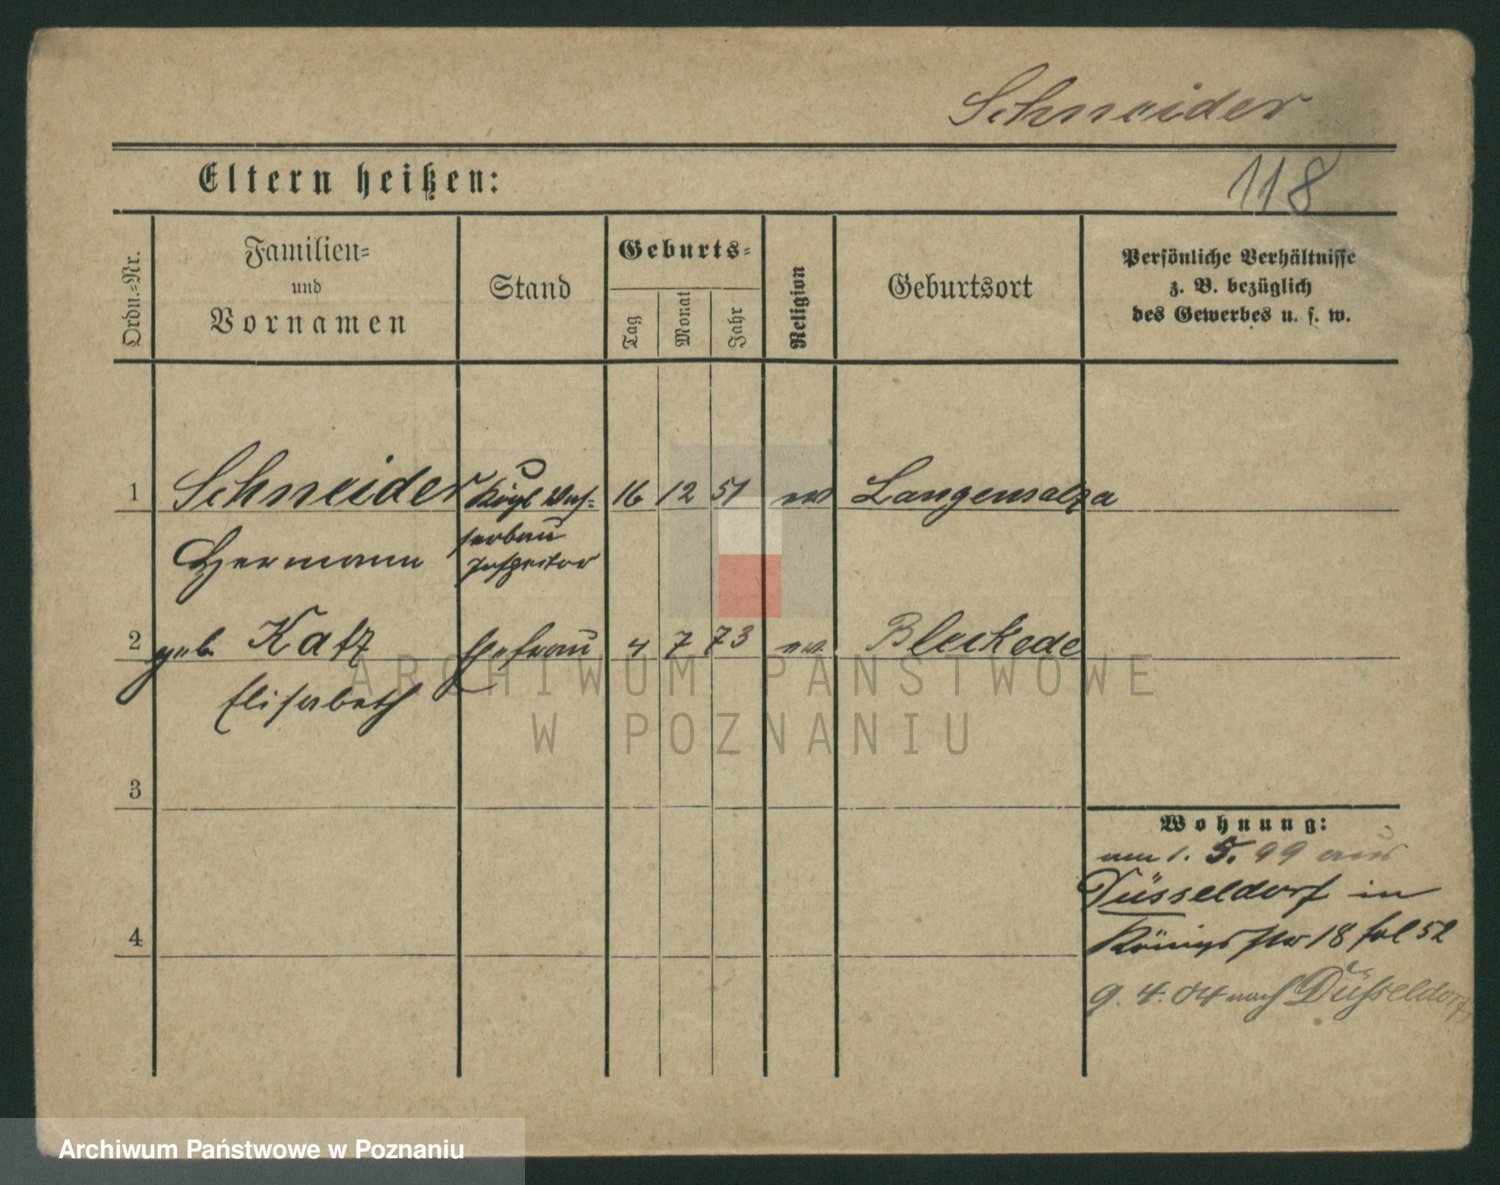 Schneider
Eltern heißen:
118
Ordn.-Nr.
Familien-
und
Vornamen
Stand
Geburts-
Tag
Monat
Jahr
Religion
Geburtsort
Persönliche Verhältnisse
z. B. bezüglich
des Gewerbes u. s. w.
1 Schneider Königl Was- 16 12 51 ev Langensalza
Hermann serbau
Inspektor
2 geb Katz Ehefrau 4 7 73 ev. Bleckede
Elisabeth
ARCHIWUM PAŃSTWOWE
W POZNANIU
3
Wohnung:
am 1. 5. 99 aus
Düsseldorf in
Königsstr 18 fol 52
4
9. 4. 04 nach Düsseldorf
Archiwum Państwowe w Poznaniu